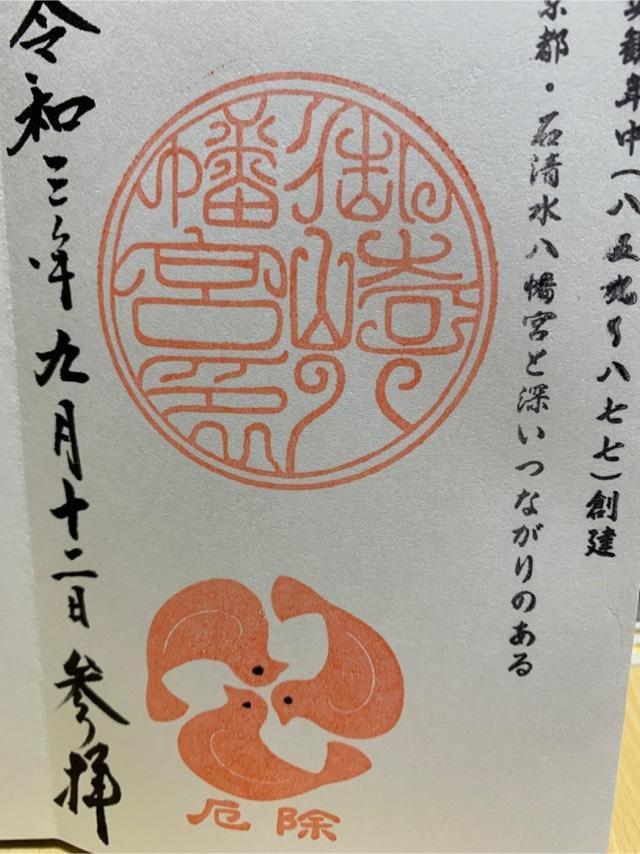 観年中(八五九〜八七七)創建
京都・石清水八幡宮と深いつながりのある
御崎八
幡宮印
厄除
令和三年九月十二日参拝